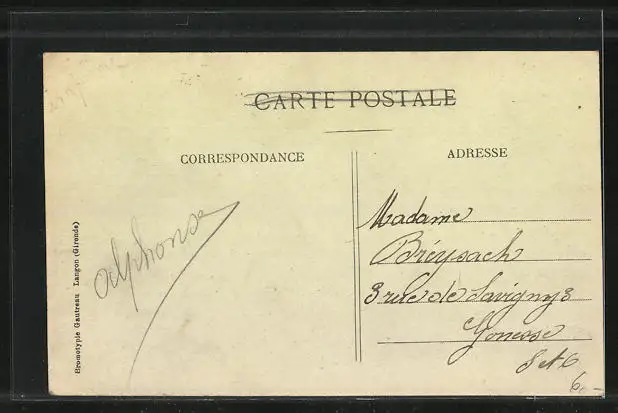 CARTE POSTALE
CORRESPONDANCE
ADRESSE
Alphonse
Madame
Bréysach
3 rue de Savigny 3
Gonesse
S et O
6.-
Bromotypie Gautreau Langon (Gironde)